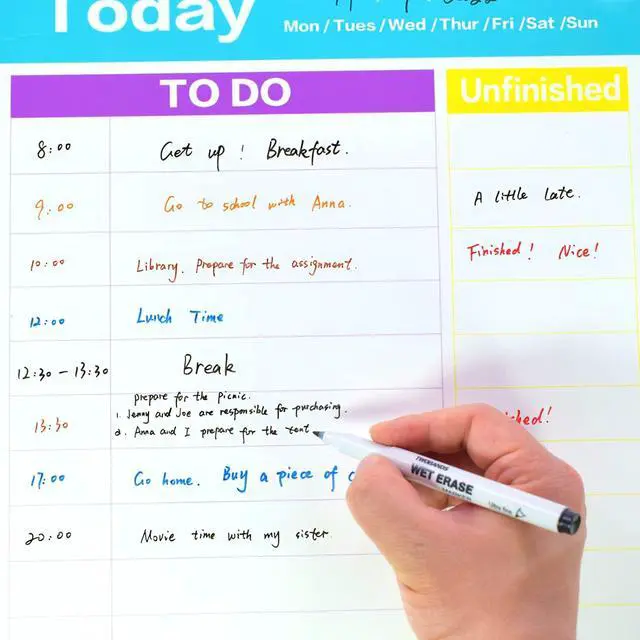 Today
Mon / Tues / Wed / Thur / Fri / Sat / Sun
TO DO Unfinished
8:00 Get up ! Breakfast.
9:00 Go to school with Anna. A little late.
10:00 Library. Prepare for the assignment. Finished! Nice!
12:00 Lunch Time
12:30 - 13:30 Break
prepare for the picnic.
13:30 1. Jenny and Joe are responsible for purchasing.
2. Anna and I prepare for the tent
17:00 Go home. Buy a piece of
20:00 Movie time with my sister.
WET ERASE
MARKER
Ultra fine